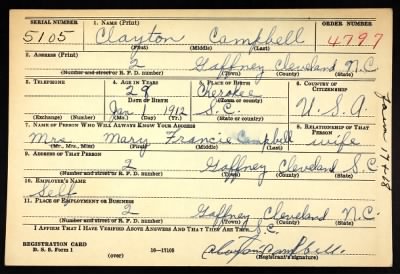 SERIAL NUMBER 1. NAME (Print) ORDER NUMBER
5105 Clayton Campbell 4797
(First) (Middle) (Last)
2. ADDRESS (Print)
2 Gaffney Cleveland N.C.
(Number and street or R. F. D. number) (Town) (County) (State)
3. TELEPHONE 4. AGE IN YEARS 5. PLACE OF BIRTH 6. COUNTRY OF CITIZENSHIP
29 Cherokee
DATE OF BIRTH (Town or county)
Jan 1 1912 S.C. U.S.A.
(Exchange) (Number) (Mo.) (Day) (Yr.) (State or country)
7. NAME OF PERSON WHO WILL ALWAYS KNOW YOUR ADDRESS 8. RELATIONSHIP OF THAT PERSON
Mrs. Mary Francie Campbell wife
(Mr., Mrs., Miss) (First) (Middle) (Last)
9. ADDRESS OF THAT PERSON
2 Gaffney Cleveland S.C.
(Number and street or R. F. D. number) (Town) (County) (State)
10. EMPLOYER'S NAME
Self
11. PLACE OF EMPLOYMENT OR BUSINESS
2 Gaffney Cleveland N.C.
(Number and street or R. F. D. number) (Town) (County) (State)
I AFFIRM THAT I HAVE VERIFIED ABOVE ANSWERS AND THAT THEY ARE TRUE. S.C.
REGISTRATION CARD
D. S. S. Form 1 (over) 16—17105 Clayton Campbell
(Registrant's signature)